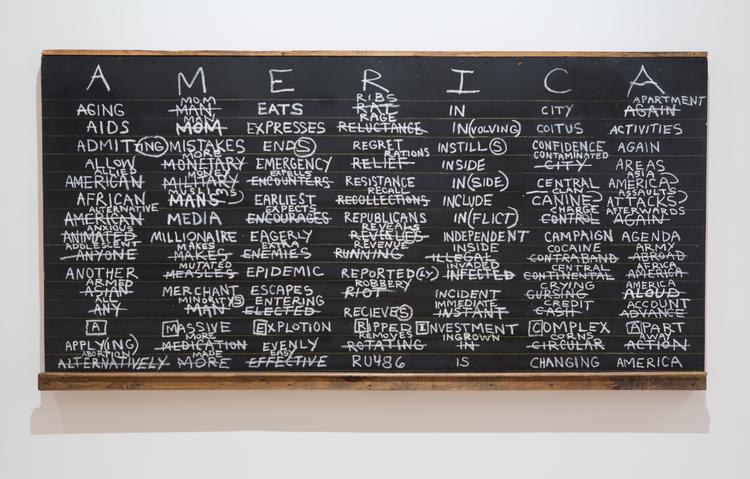 A M E R I C A
MOM RIBS APARTMENT
AGING MAN EATS RAT IN CITY AGAIN
MAN RAGE
AIDS MOM EXPRESSES RELUCTANCE IN(VOLVING) COITUS ACTIVITIES
ADMITTING MISTAKES ENDS REGRET INSTILLS CONFIDENCE AGAIN
MORE RATIONS CONTAMINATED
ALLOW MONETARY EMERGENCY RELIEF INSIDE CITY AREAS
ALLIED MONEY EXPELLS ASIA
AMERICAN MILITARY ENCOUNTERS RESISTANCE IN(SIDE) CENTRAL AMERICA
MUSLIMS RECALL CLAN ASSAULTS
AFRICAN MANS EARLIEST RECOLLECTIONS INCLUDE CANINE ATTACKS
ALTERNATIVE EXPECTS CHARGE AFTERWARDS
AMERICAN MEDIA ENCOURAGES REPUBLICANS IN(FLICT) CONTROL AGAIN
ANXIOUS REVEALS
ANIMATED MILLIONAIRE EAGERLY REVEALES INDEPENDENT CAMPAIGN AGENDA
ADOLESCENT MAKES EXTRA REVENUE INSIDE COCAINE ARMY
ANYONE MAKES ENEMIES RUNNING ILLEGAL CONTRABAND ABROAD
MUTATED INVADED CENTRAL AMERICA
ANOTHER EPIDEMIC REPORTED(LY) INFECTED CONTINENTAL AMERICA
ARMED ROBBERY CRYING AMERICA
AGAIN MERCHANT ESCAPES RIOT INCIDENT CURSING ALOUD
ALL MINORITYS ENTERING IMMEDIATE CREDIT ACCOUNT
ANY MAN ELECTED RECIEVES INSTANT CASH ADVANCE
A MASSIVE EXPLOTION RIPPED INVESTMENT COMPLEX APART
MORE REMOVES INGROWN CORNS AWAY
APPLY(ING) MEDICATION EVENLY ROTATING IN CIRCULAR ACTION
ABORTION MADE EASY
ALTERNATIVELY MORE EFFECTIVE RU486 IS CHANGING AMERICA